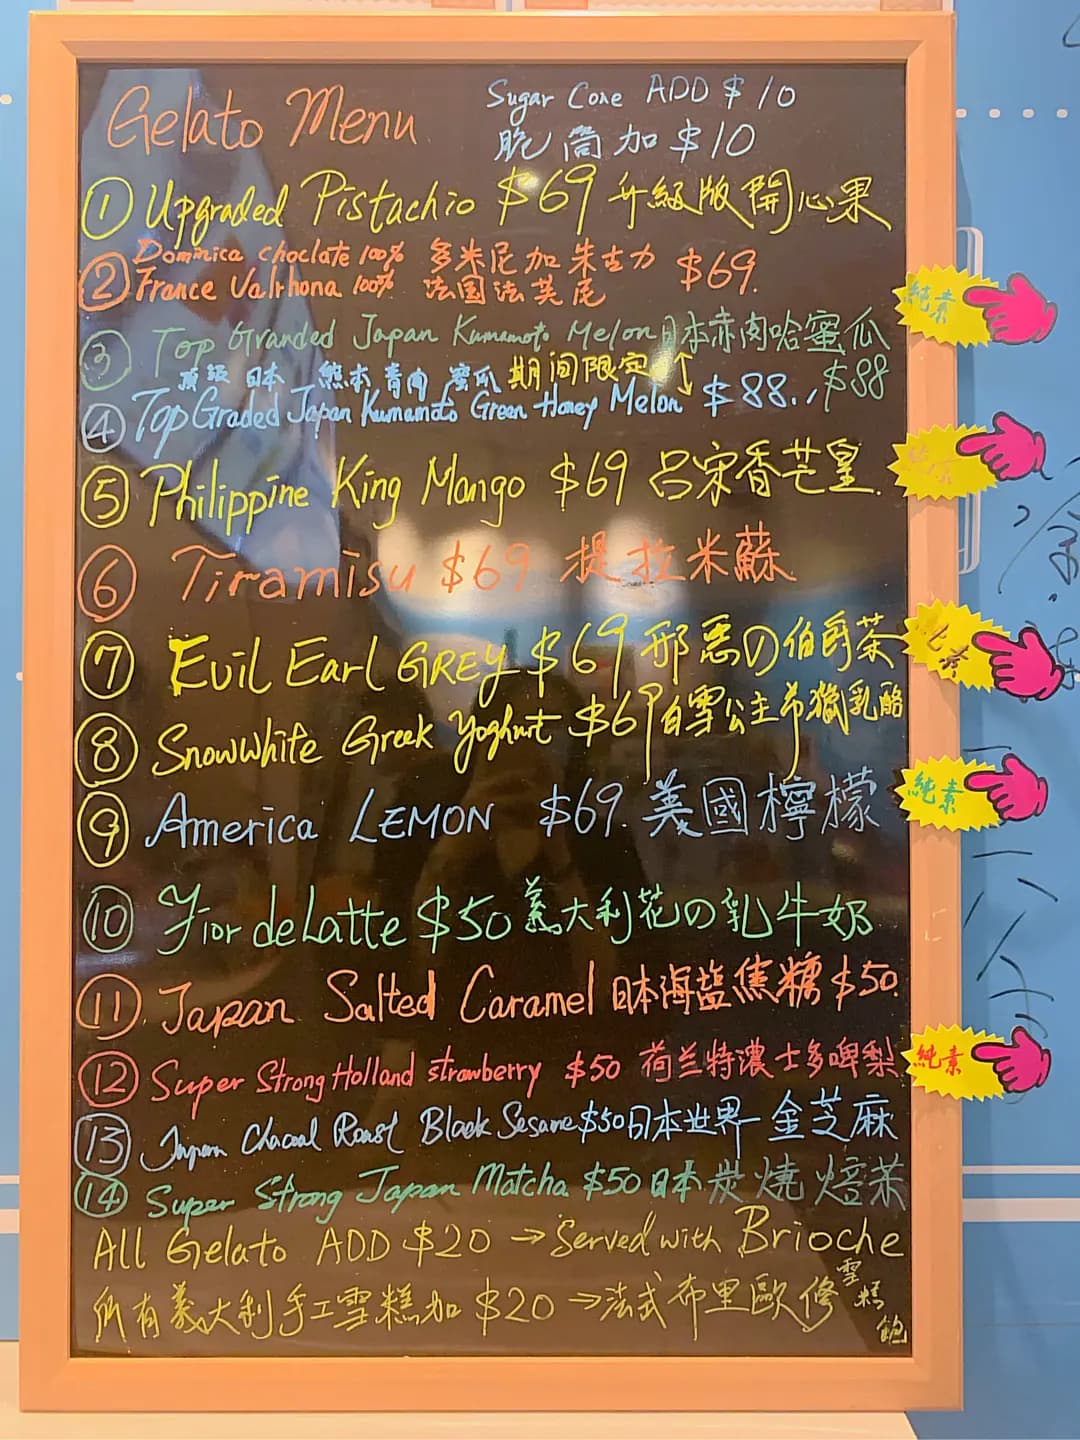 Gelato Menu
Sugar Cone ADD $10
脆筒加$10
① Upgraded Pistachio $69 升級版開心果
② Dominica choclate 100% 多米尼加朱古力 $69.
France Valrhona 100% 法国法芙尼
純素
③ Top Granded Japan Kumamoto Melon 日本赤肉哈蜜瓜 $88
頂級 日本 熊本 青肉 蜜瓜 期间限定
④ Top Graded Japan Kumamoto Green Honey Melon $88.
⑤ Philippine King Mango $69 呂宋香芒皇.
⑥ Tiramisu $69 提拉米蘇
⑦ Evil Earl GREY $69 邪惡の伯爵茶
⑧ Snowwhite Greek Yoghurt $69 白雪公主希臘乳酪
⑨ America LEMON $69. 美國檸檬
純素
⑩ Fior de Latte $50 義大利花の乳牛奶
⑪ Japan Salted Caramel 日本海盐焦糖 $50.
⑫ Super Strong Holland strawberry $50 荷兰特濃士多啤梨
純素
⑬ Japan Chacoal Roast Black Sesame $50 日本世界一金芝麻
⑭ Super Strong Japan Matcha $50 日本炭燒焙茶
All Gelato ADD $20 → Served with Brioche
所有義大利手工雪糕加 $20 → 法式布里歐修雪糕飽